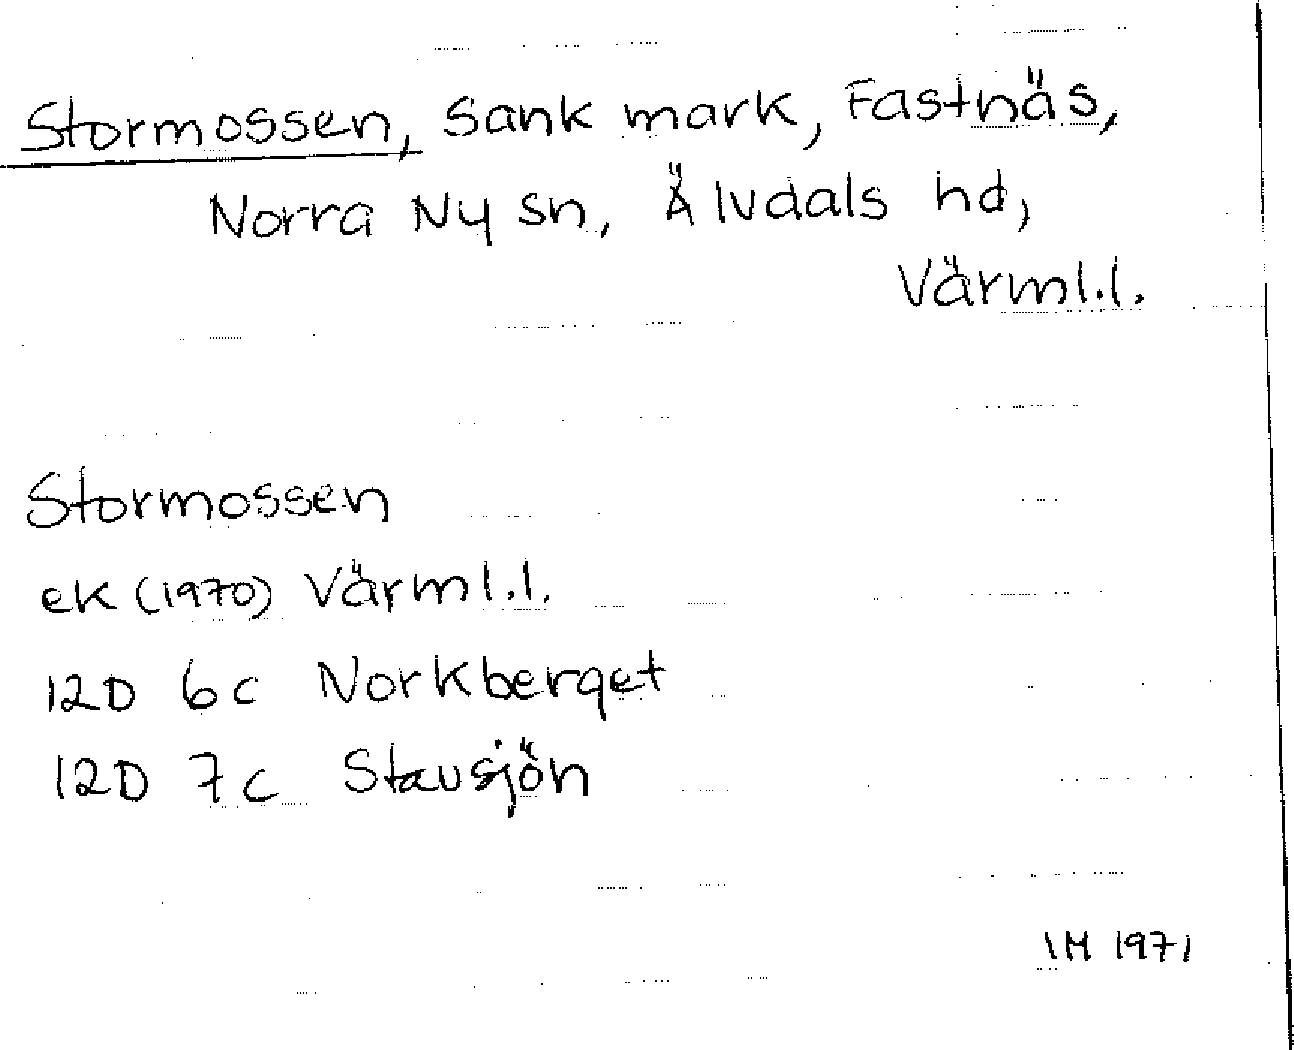 Stormossen, Sank mark, Fastnäs,
Norra Ny sn, Älvdals hd,
Värml.l.
Stormossen
ek (1970) Värml.l.
12D 6c Norkberget
12D 7c Stavsjön
IM 1971